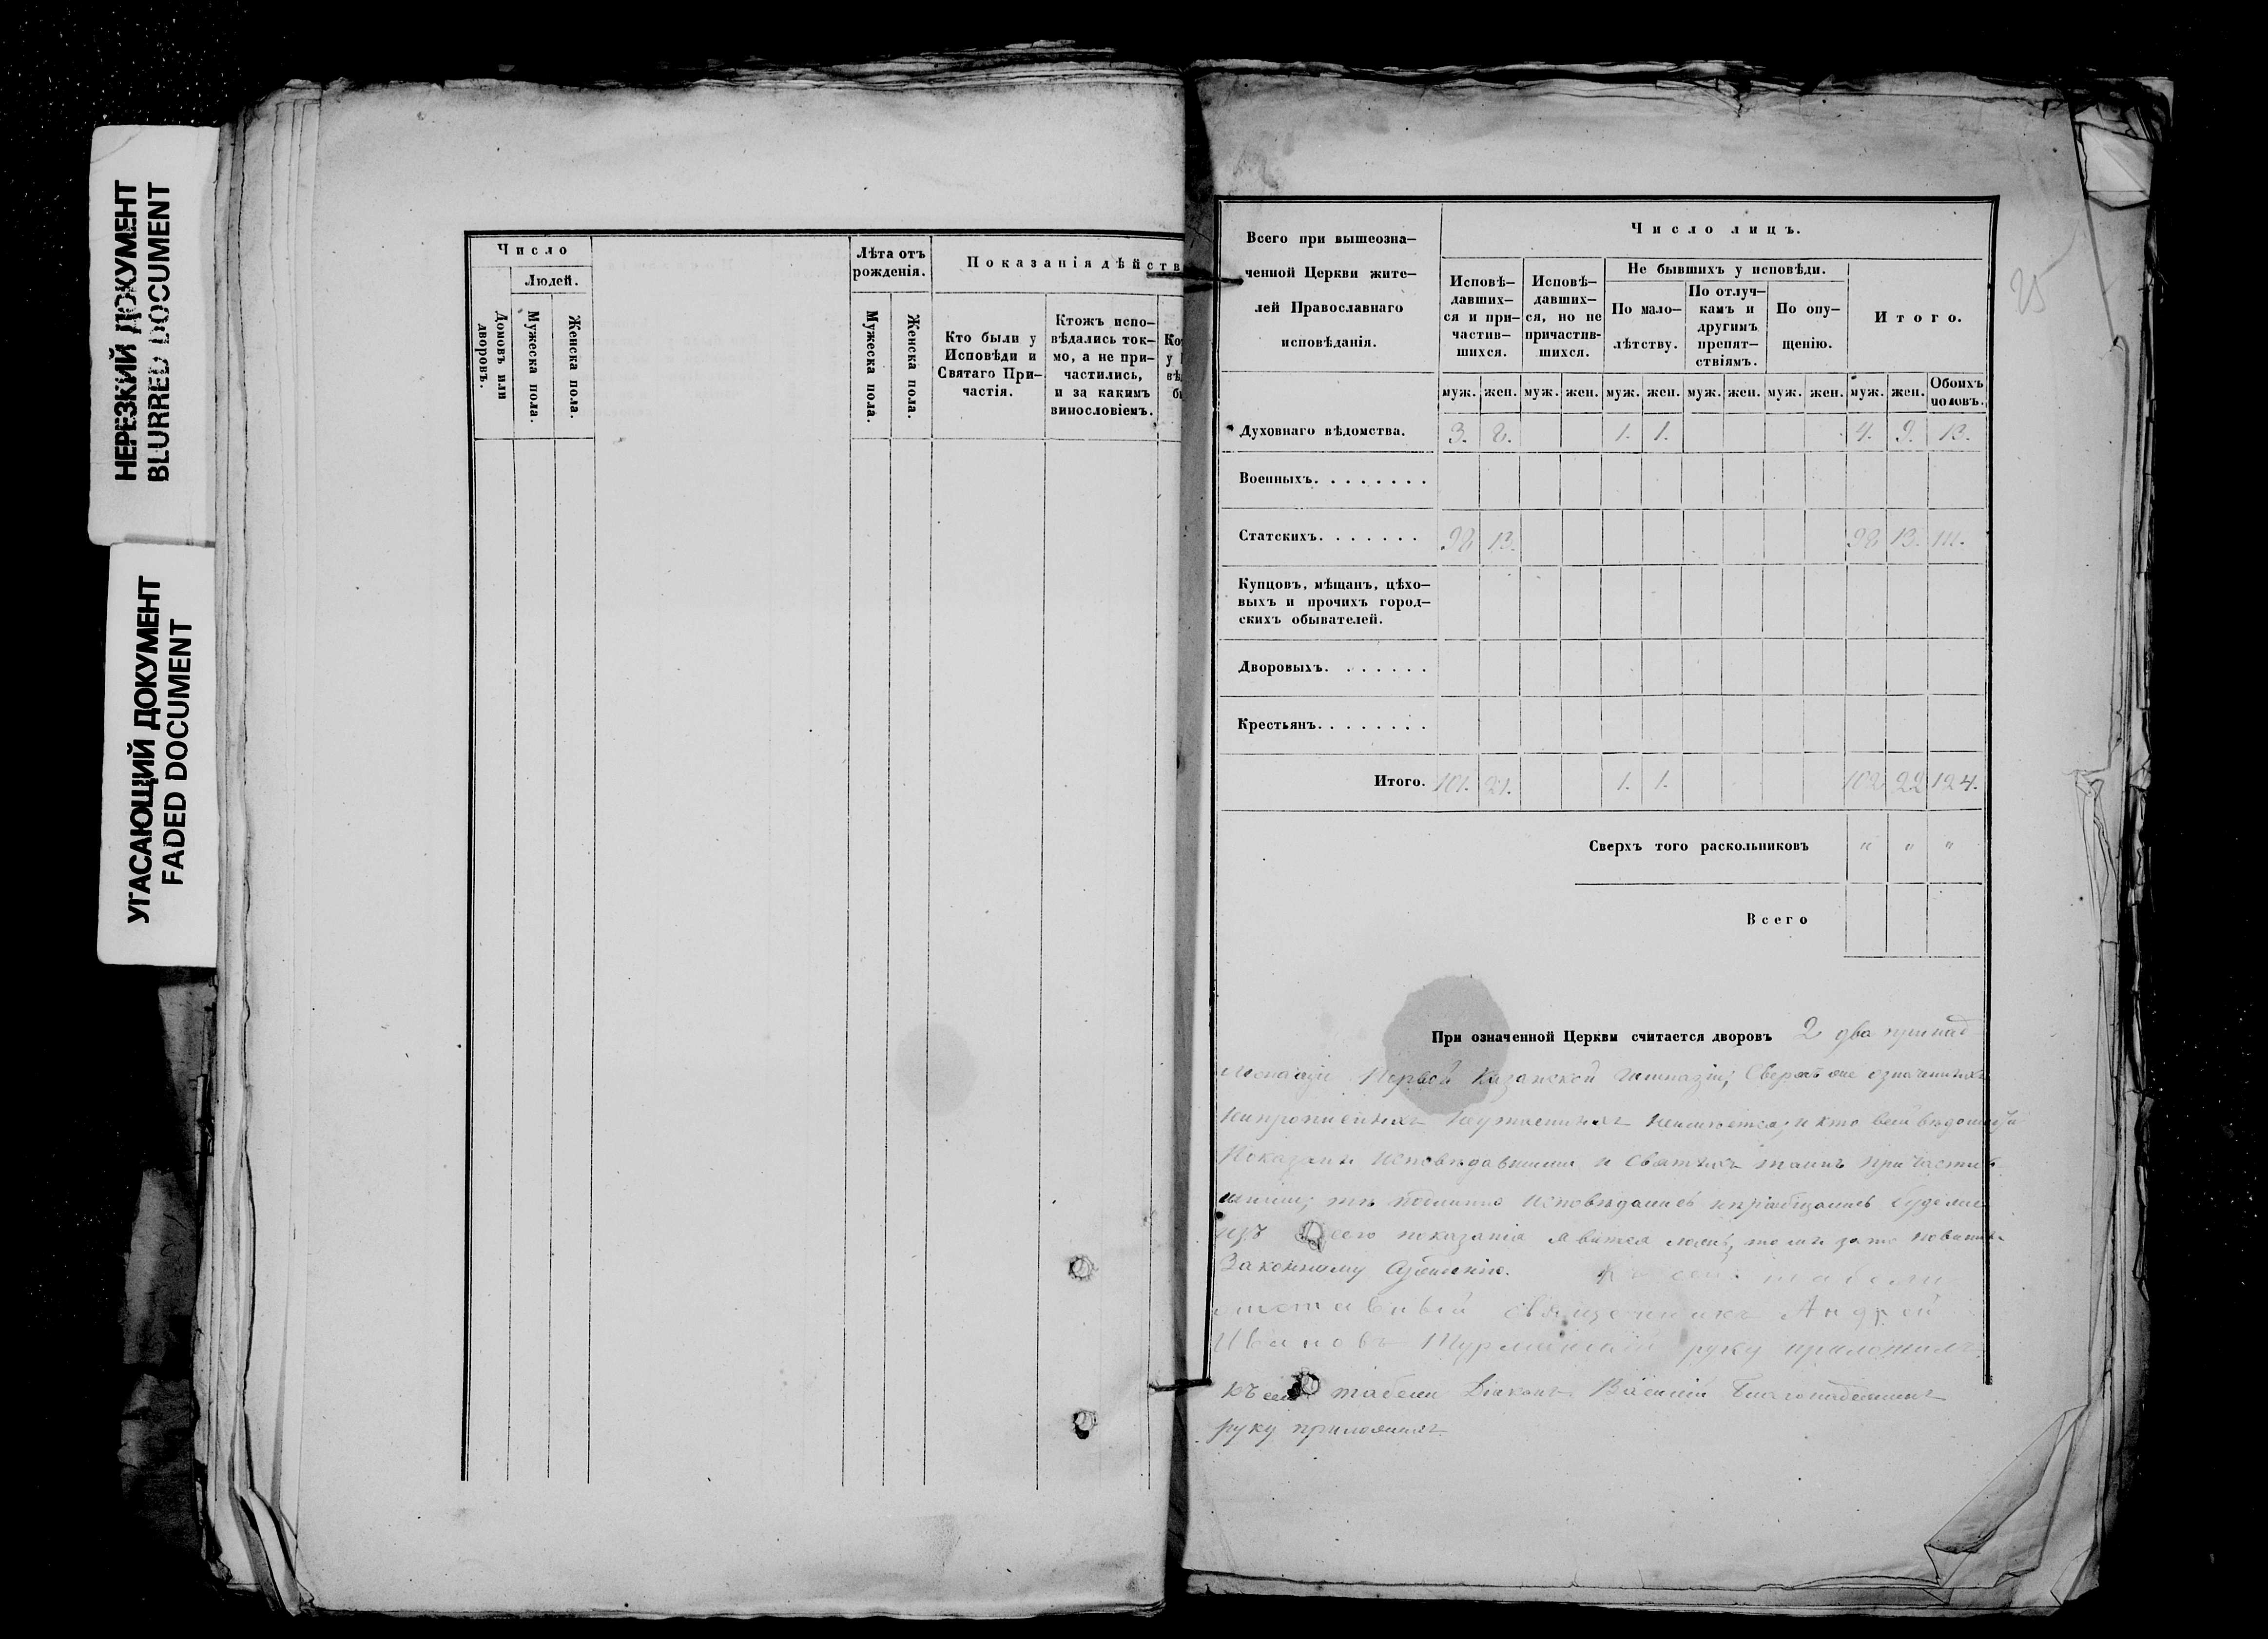 НЕРЕЗКИЙ ДОКУМЕНТ
BLURRED DOCUMENT
УГАСАЮЩИЙ ДОКУМЕНТ
FADED DOCUMENT
Число
Людей.
Домовъ или дворовъ.
Мужеска пола.
Женска пола.
Лѣта отъ
рожденія.
Мужеска пола.
Женска пола.
Показанія дѣйств
Кто были у
Исповѣди и
Святаго При-
частія.
Ктожъ испо-
вѣдались ток-
мо, а не при-
частились,
и за какимъ
винословіемъ.
25
Всего при вышеозна-
ченной Церкви жите-
лей Православнаго
исповѣданія.
Число лицъ.
Исповѣ-
давших-
ся и при-
частив-
шихся.
Исповѣ-
давших-
ся, но не
причастив-
шихся.
Не бывшихъ у исповѣди.
По мало-
лѣтству.
По отлуч-
камъ и
другимъ
препят-
ствіямъ.
По опу-
щенію.
Итого.
муж. жен. муж. жен. муж. жен. муж. жен. муж. жен. муж. жен. Обоихъ половъ.
Духовнаго вѣдомства. 3. 8. 1. 1. 4. 9. 13.
Военныхъ. . . . . . . .
Статскихъ. . . . . . . 98 13. 98 13. 111.
Купцовъ, мѣщанъ, цѣхо-
выхъ и прочихъ город-
скихъ обывателей.
Дворовыхъ. . . . . . .
Крестьянъ. . . . . . . .
Итого. 101. 21. 1. 1. 102 22 124.
Сверхъ того раскольниковъ " " "
Всего
При означенной Церкви считается дворовъ 2 два принад
лежащіе Первой Казанской Гимназіи; Сверхъ означенныхъ
непрописныхъ неутаенныхъ неимѣется; и кто
Показаны исповѣдавшими и Святыхъ таинъ причастив
шимися; тѣ подлинно исповѣдались
изъ сего показанія явится ложь, то за то повинны
Законному сужденію. Къ сей табели
Священникъ Андрей
Ивановъ руку приложилъ
Къ сей табели Діаконъ Василій
руку приложилъ